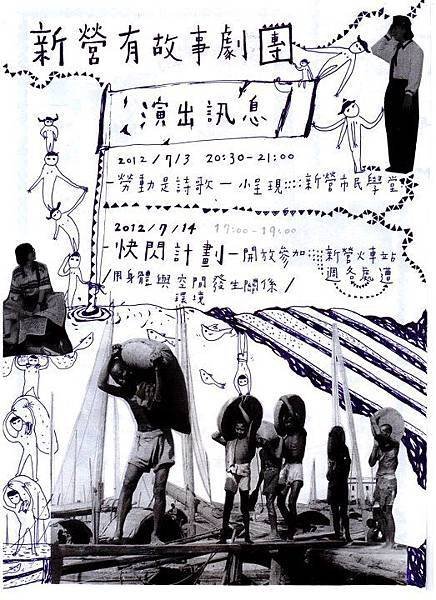 新營有故事劇團
演出訊息
2012/7/3 20:30-21:00
-勞動是詩歌-小呈現::::新營市民學堂
2012/7/14 17:00-19:00
-快閃計劃-開放參加::::新營火車站
週各處遭
/用身體與空間發生關係/
環境